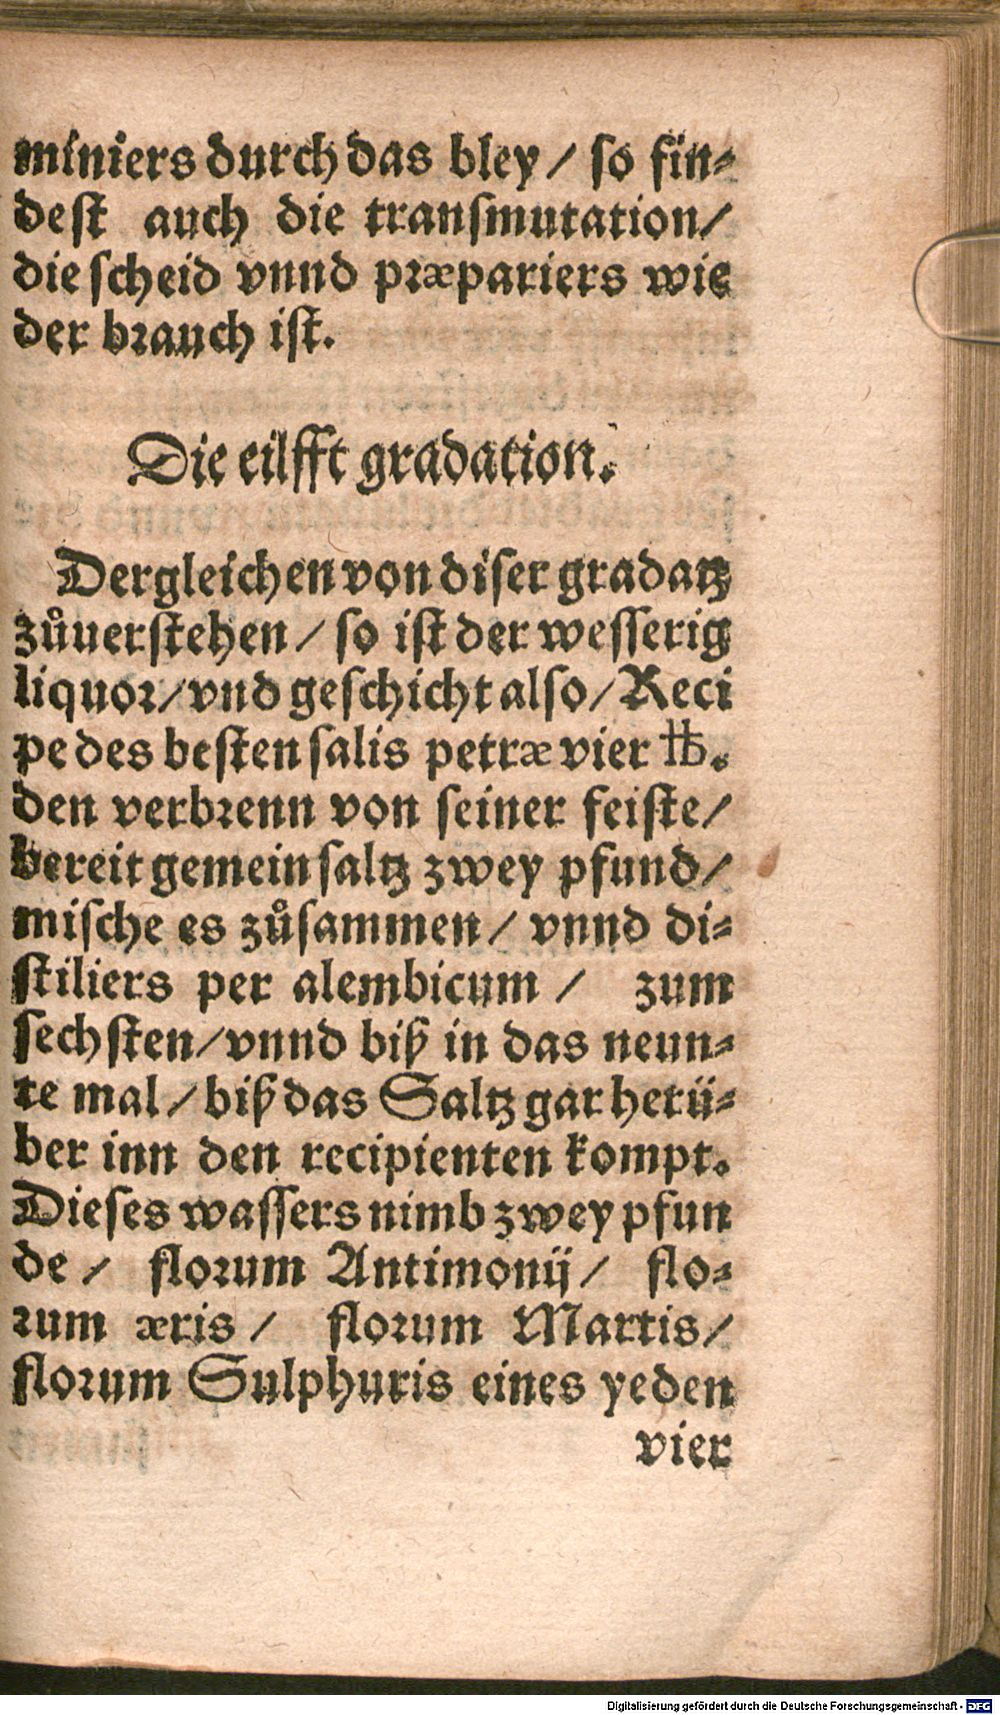 miniers durch das bley / so fin⸗
dest auch die transmutation /
die scheid vnnd præpariers wie
der brauch ist.
Die eilfft gradation.
Dergleichen von diser gradatz
zůuerstehen / so ist der wesserig
liquor / vnd geschicht also / Reci
pe des besten salis petræ vier ℔.
den verbrenn von seiner feiste /
bereit gemein saltz zwey pfund /
mische es zůsammen / vnnd di⸗
stiliers per alembicum / zum
sechsten / vnnd biß in das neun⸗
te mal / biß das Saltz gar herü⸗
ber inn den recipienten kompt.
Dieses wassers nimb zwey pfun
de / florum Antimonij / flo⸗
rum æris / florum Martis /
florum Sulphuris eines yeden
vier
Digitalisierung gefördert durch die Deutsche Forschungsgemeinschaft - DFG